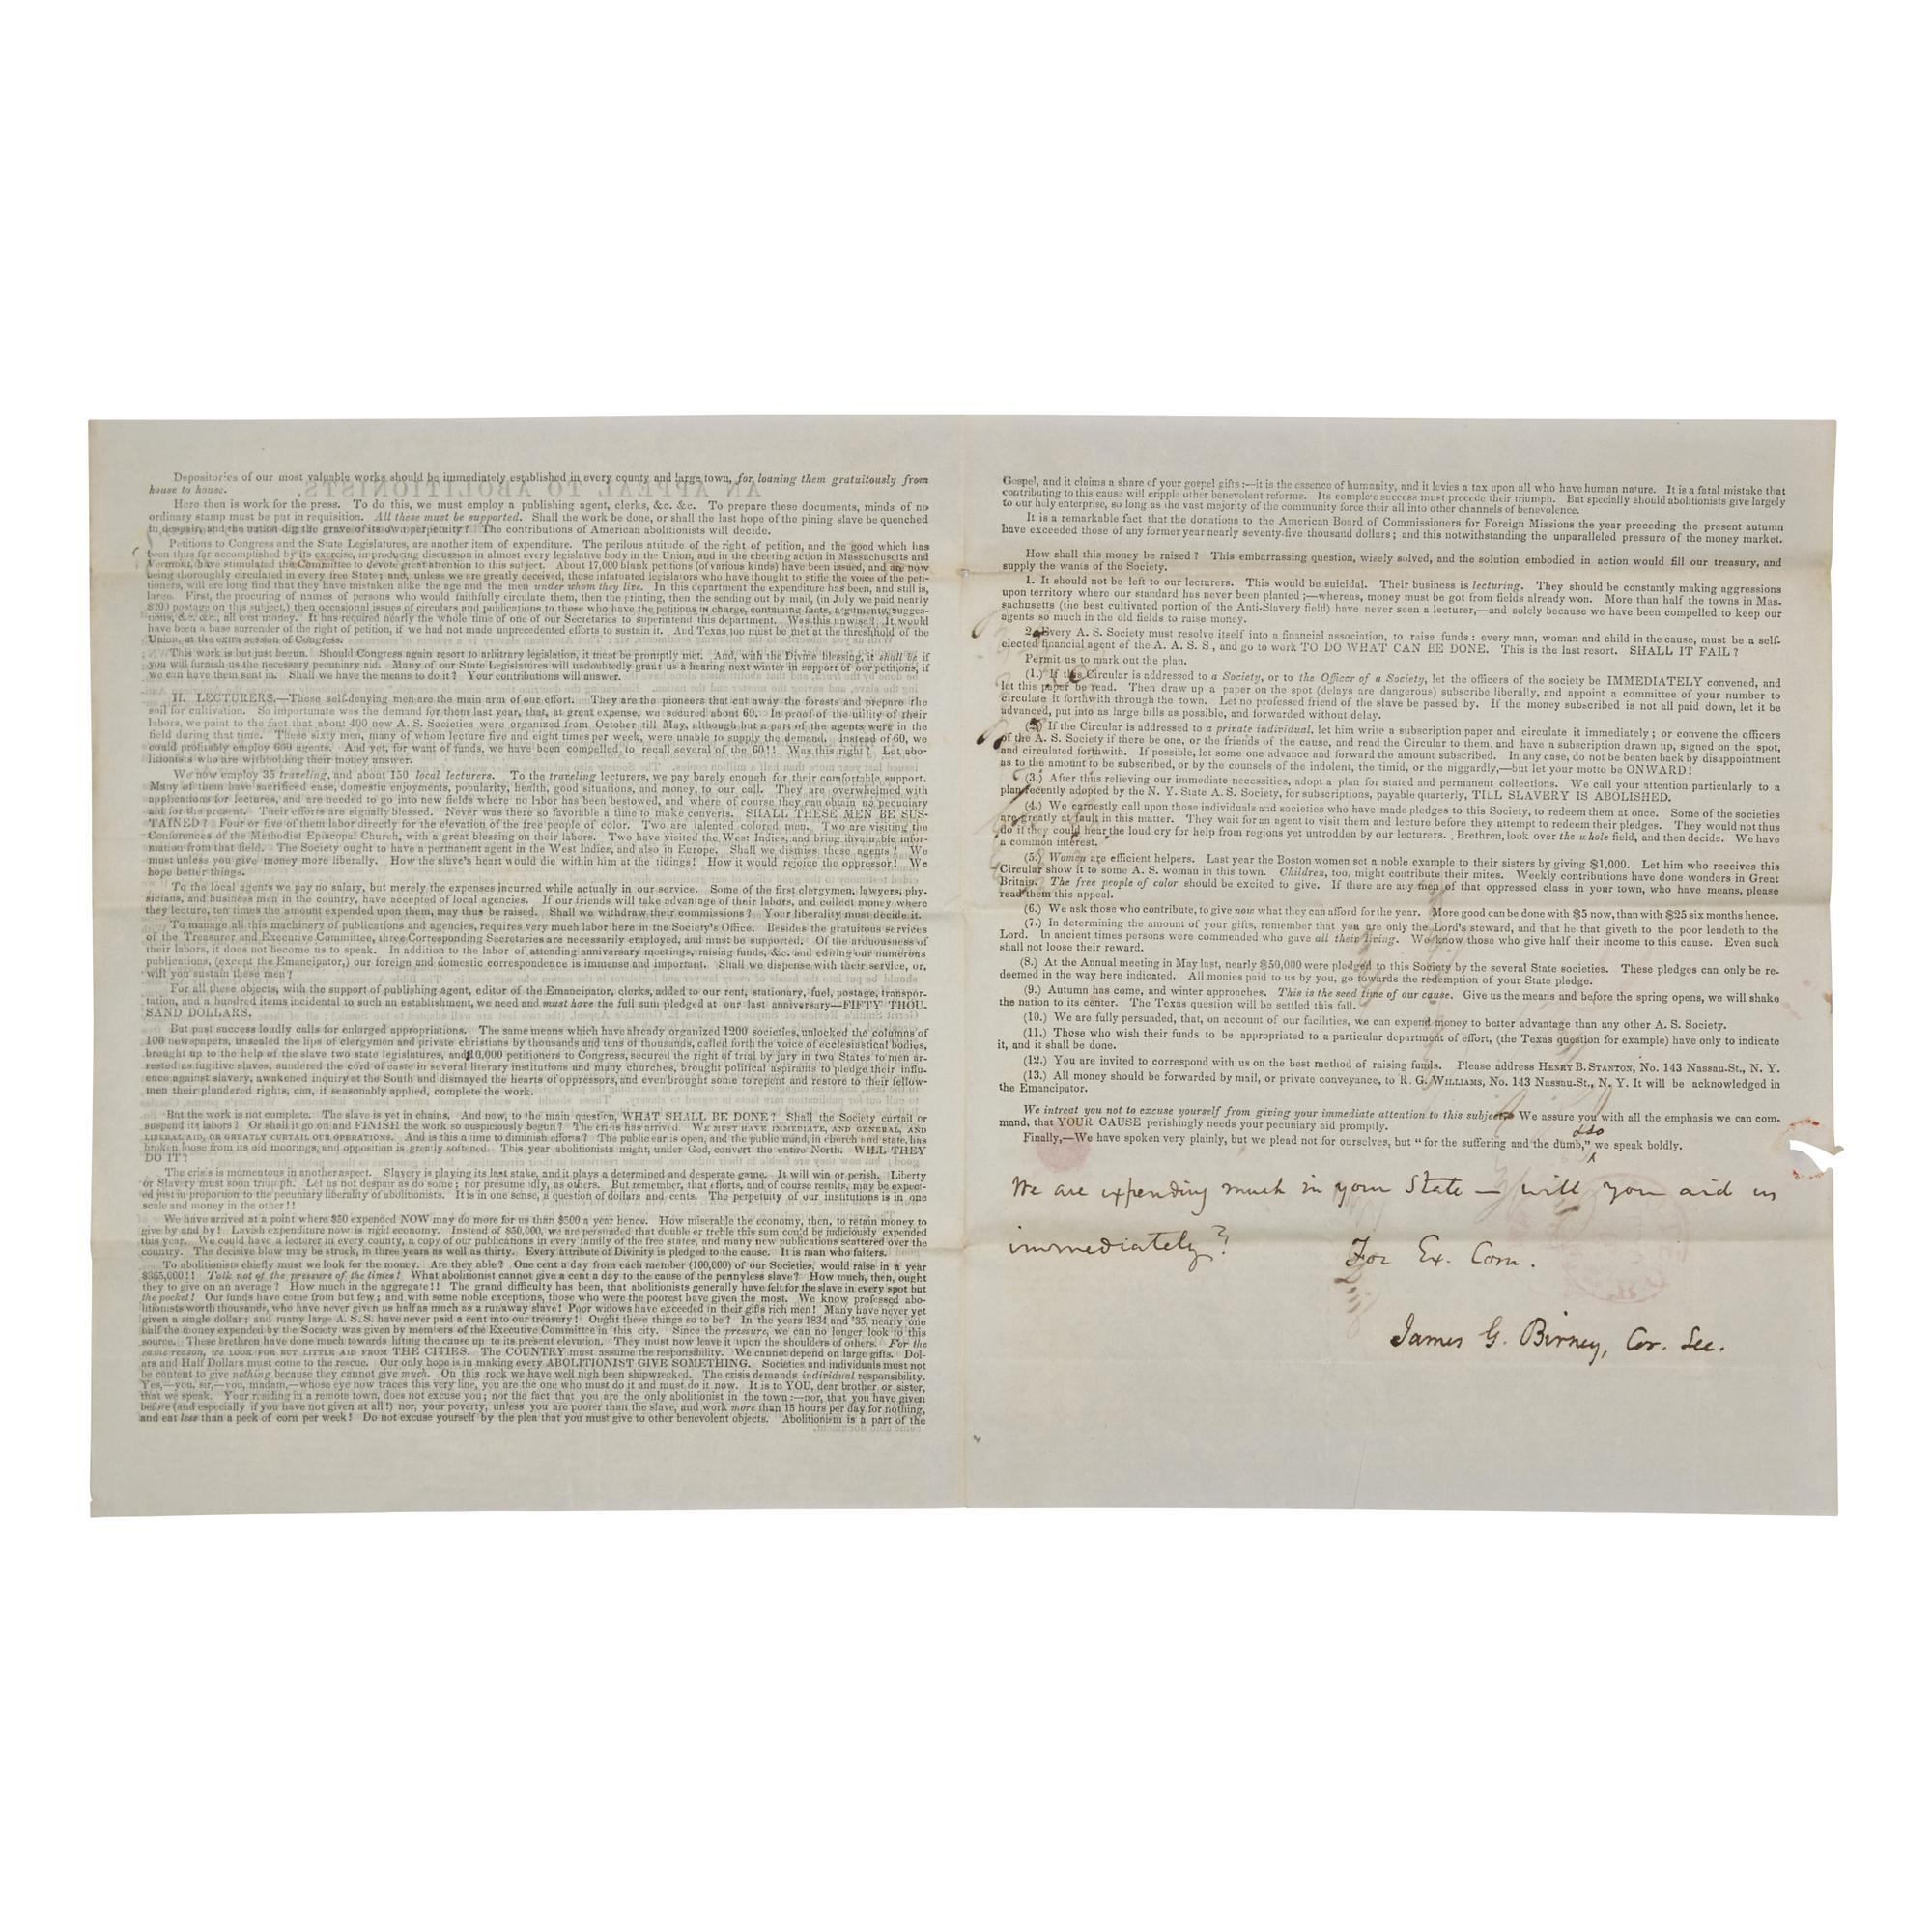 Depositories of our most valuable works should be immediately established in every county and large town, for loaning them gratuitously from
house to house.
Here then is work for the press. To do this, we must employ a publishing agent, clerks, &c. &c. To prepare these documents, minds of no
ordinary stamp must be put in requisition. All these must be supported. Shall the work be done, or shall the last hope of the pining slave be quenched
in despair, and the nation dig the grave of its own perpetuity? The contributions of American abolitionists will decide.
Petitions to Congress and the State Legislatures, are another item of expenditure. The perilous attitude of the right of petition, and the good which has
been thus far accomplished by its exercise, in producing discussion in almost every legislative body in the Union, and in the cheering action in Massachusetts and
Vermont, have stimulated the Committee to devote great attention to this subject. About 17,000 blank petitions (of various kinds) have been issued, and are now
being thoroughly circulated in every free State; and, unless we are greatly deceived, those infatuated legislators who have thought to stifle the voice of the peti-
tioners, will ere long find that they have mistaken alike the age and the men under whom they live. In this department the expenditure has been, and still is,
large. First, the procuring of names of persons who would faithfully circulate them, then the printing, then the sending out by mail, (in July we paid nearly
postage on this subject,) then occasional issues of circulars and publications to those who have the petitions in charge, containing facts, arguments, sugges-
tions, &c. &c., all cost money. It has required nearly the whole time of one of our Secretaries to superintend this department. Was this unwise? It would
have been a base surrender of the right of petition, if we had not made unprecedented efforts to sustain it. And Texas too must be met at the threshold of the
Union, at the extra session of Congress.
This work is but just begun. Should Congress again resort to arbitrary legislation, it must be promptly met. And, with the Divine blessing, it shall be if
you will furnish us the necessary pecuniary aid. Many of our State Legislatures will undoubtedly grant us a hearing next winter in support of our petitions, if
we can have them sent in. Shall we have the means to do it? Your contributions will answer.
II. LECTURERS.—These self-denying men are the main arm of our effort. They are the pioneers that cut away the forests and prepare the
soil for cultivation. So importunate was the demand for them last year, that, at great expense, we secured about 60. In proof of the utility of their
labors, we point to the fact that about 400 new A. S. Societies were organized from October till May, although but a part of the agents were in the
field during that time. These sixty men, many of whom lecture five and eight times per week, were unable to supply the demand. Instead of 60, we
could profitably employ 600 agents. And yet, for want of funds, we have been compelled to recall several of the 60!! Was this right? Let abo-
litionists who are withholding their money answer.
We now employ 35 traveling, and about 150 local lecturers. To the traveling lecturers, we pay barely enough for their comfortable support.
Many of them have sacrificed ease, domestic enjoyments, popularity, health, good situations, and money, to our call. They are overwhelmed with
applications for lectures, and are needed to go into new fields where no labor has been bestowed, and where of course they can obtain no pecuniary
aid for the present. Their efforts are signally blessed. Never was there so favorable a time to make converts. SHALL THESE MEN BE SUS-
TAINED? Four or five of them labor directly for the elevation of the free people of color. Two are talented colored men. Two are visiting the
Conferences of the Methodist Episcopal Church, with a great blessing on their labors. Two have visited the West Indies, and bring invaluable infor-
mation from that field. The Society ought to have a permanent agent in the West Indies, and also in Europe. Shall we dismiss these agents? We
must unless you give money more liberally. How the slave's heart would die within him at the tidings! How it would rejoice the oppressor! We
hope better things.
To the local agents we pay no salary, but merely the expenses incurred while actually in our service. Some of the first clergymen, lawyers, phy-
sicians, and business men in the country, have accepted of local agencies. If our friends will take advantage of their labors, and collect money where
they lecture, ten times the amount expended upon them, may thus be raised. Shall we withdraw their commissions? Your liberality must decide it.
To manage all this machinery of publications and agencies, requires very much labor here in the Society's Office. Besides the gratuitous services
of the Treasurer and Executive Committee, three Corresponding Secretaries are necessarily employed, and must be supported. Of the arduousness of
their labors, it does not become us to speak. In addition to the labor of attending anniversary meetings, raising funds, &c. and editing our numerous
publications, (except the Emancipator,) our foreign and domestic correspondence is immense and important. Shall we dispense with their service, or,
will you sustain these men?
For all these objects, with the support of publishing agent, editor of the Emancipator, clerks, added to our rent, stationary, fuel, postage, transpor-
tation, and a hundred items incidental to such an establishment, we need and must have the full sum pledged at our last anniversary—FIFTY THOU-
SAND DOLLARS.
But past success loudly calls for enlarged appropriations. The same means which have already organized 1200 societies, unlocked the columns of
100 newspapers, unsealed the lips of clergymen and private christians by thousands and tens of thousands, called forth the voice of ecclesiastical bodies,
brought up to the help of the slave two state legislatures, and 10,000 petitioners to Congress, secured the right of trial by jury in two States to men ar-
rested as fugitive slaves, sundered the cord of caste in several literary institutions and many churches, brought political aspirants to pledge their influ-
ence against slavery, awakened inquiry at the South and dismayed the hearts of oppressors, and even brought some to repent and restore to their fellow-
men their plundered rights, can, if seasonably applied, complete the work.
But the work is not complete. The slave is yet in chains. And now, to the main question, WHAT SHALL BE DONE? Shall the Society curtail or
suspend its labors? Or shall it go on and FINISH the work so auspiciously begun? The crisis has arrived. WE MUST HAVE IMMEDIATE, AND GENERAL, AND
LIBERAL AID, OR GREATLY CURTAIL OUR OPERATIONS. And is this a time to diminish efforts? The public ear is open, and the public mind, in church and state, has
broken loose from its old moorings, and opposition is greatly softened. This year abolitionists might, under God, convert the entire North. WILL THEY
DO IT?
The crisis is momentous in another aspect. Slavery is playing its last stake, and it plays a determined and desperate game. It will win or perish. Liberty
or Slavery must soon triumph. Let us not despair as do some; nor presume idly, as others. But remember, that efforts, and of course results, may be expect-
ed just in proportion to the pecuniary liberality of abolitionists. It is in one sense, a question of dollars and cents. The perpetuity of our institutions is in one
scale and money in the other!!
We have arrived at a point where $50 expended NOW may do more for us than $500 a year hence. How miserable the economy, then, to retain money to
give by and by! Lavish expenditure now is rigid economy. Instead of $50,000, we are persuaded that double or treble this sum could be judiciously expended
this year. We could have a lecturer in every county, a copy of our publications in every family of the free states, and many new publications scattered over the
country. The decisive blow may be struck, in three years as well as thirty. Every attribute of Divinity is pledged to the cause. It is man who falters.
To abolitionists chiefly must we look for the money. Are they able? One cent a day from each member (100,000) of our Societies, would raise in a year
$365,000!! Talk not of the pressure of the times! What abolitionist cannot give a cent a day to the cause of the pennyless slave? How much, then, ought
they to give on an average? How much in the aggregate!! The grand difficulty has been, that abolitionists generally have felt for the slave in every spot but
the pocket! Our funds have come from but few; and with some noble exceptions, those who were the poorest have given the most. We know professed abo-
litionists worth thousands, who have never given us half as much as a runaway slave! Poor widows have exceeded in their gifts rich men! Many have never yet
given a single dollar; and many large A. S. S. have never paid a cent into our treasury! Ought these things so to be? In the years 1834 and '35, nearly one
half the money expended by the Society was given by members of the Executive Committee in this city. Since the pressure, we can no longer look to this
source. These brethren have done much towards lifting the cause up to its present elevation. They must now leave it upon the shoulders of others. For the
same reason, WE LOOK FOR BUT LITTLE AID FROM THE CITIES. The COUNTRY must assume the responsibility. We cannot depend on large gifts. Dol-
ars and Half Dollars must come to the rescue. Our only hope is in making every ABOLITIONIST GIVE SOMETHING. Societies and individuals must not
be content to give nothing because they cannot give much. On this rock we have well nigh been shipwrecked. The crisis demands individual responsibility.
Yes,—you, sir,—you, madam,—whose eye now traces this very line, you are the one who must do it and must do it now. It is to YOU, dear brother or sister,
that we speak. Your residing in a remote town, does not excuse you; nor the fact that you are the only abolitionist in the town:—nor, that you have given
before (and especially if you have not given at all!) nor, your poverty, unless you are poorer than the slave, and work more than 15 hours per day for nothing,
and eat less than a peck of corn per week! Do not excuse yourself by the plea that you must give to other benevolent objects. Abolitionism is a part of the
Gospel, and it claims a share of your gospel gifts:—it is the essence of humanity, and it levies a tax upon all who have human nature. It is a fatal mistake that
contributing to this cause will cripple other benevolent reforms. Its complete success must precede their triumph. But specially should abolitionists give largely
to our holy enterprise, so long as the vast majority of the community force their all into other channels of benevolence.
It is a remarkable fact that the donations to the American Board of Commissioners for Foreign Missions the year preceding the present autumn
have exceeded those of any former year nearly seventy-five thousand dollars; and this notwithstanding the unparalleled pressure of the money market.
How shall this money be raised? This embarrassing question, wisely solved, and the solution embodied in action would fill our treasury, and
supply the wants of the Society.
1. It should not be left to our lecturers. This would be suicidal. Their business is lecturing. They should be constantly making aggressions
upon territory where our standard has never been planted;—whereas, money must be got from fields already won. More than half the towns in Mas-
sachusetts (the best cultivated portion of the Anti-Slavery field) have never seen a lecturer,—and solely because we have been compelled to keep our
agents so much in the old fields to raise money.
2. Every A. S. Society must resolve itself into a financial association, to raise funds: every man, woman and child in the cause, must be a self-
elected financial agent of the A. A. S. S., and go to work TO DO WHAT CAN BE DONE. This is the last resort. SHALL IT FAIL?
Permit us to mark out the plan.
(1.) If this Circular is addressed to a Society, or to the Officer of a Society, let the officers of the society be IMMEDIATELY convened, and
let this paper be read. Then draw up a paper on the spot (delays are dangerous) subscribe liberally, and appoint a committee of your number to
circulate it forthwith through the town. Let no professed friend of the slave be passed by. If the money subscribed is not all paid down, let it be
advanced, put into as large bills as possible, and forwarded without delay.
(2.) If the Circular is addressed to a private individual, let him write a subscription paper and circulate it immediately; or convene the officers
of the A. S. Society if there be one, or the friends of the cause, and read the Circular to them, and have a subscription drawn up, signed on the spot,
and circulated forthwith. If possible, let some one advance and forward the amount subscribed. In any case, do not be beaten back by disappointment
as to the amount to be subscribed, or by the counsels of the indolent, the timid, or the niggardly,—but let your motto be ONWARD!
(3.) After thus relieving our immediate necessities, adopt a plan for stated and permanent collections. We call your attention particularly to a
plan recently adopted by the N. Y. State A. S. Society, for subscriptions, payable quarterly, TILL SLAVERY IS ABOLISHED.
(4.) We earnestly call upon those individuals and societies who have made pledges to this Society, to redeem them at once. Some of the societies
are greatly at fault in this matter. They wait for an agent to visit them and lecture before they attempt to redeem their pledges. They would not thus
do if they could hear the loud cry for help from regions yet untrodden by our lecturers. Brethren, look over the whole field, and then decide. We have
a common interest.
(5.) Women are efficient helpers. Last year the Boston women set a noble example to their sisters by giving $1,000. Let him who receives this
Circular show it to some A. S. woman in this town. Children, too, might contribute their mites. Weekly contributions have done wonders in Great
Britain. The free people of color should be excited to give. If there are any men of that oppressed class in your town, who have means, please
read them this appeal.
(6.) We ask those who contribute, to give now what they can afford for the year. More good can be done with $5 now, than with $25 six months hence.
(7.) In determining the amount of your gifts, remember that you are only the Lord's steward, and that he that giveth to the poor lendeth to the
Lord. In ancient times persons were commended who gave all their living. We know those who give half their income to this cause. Even such
shall not loose their reward.
(8.) At the Annual meeting in May last, nearly $50,000 were pledged to this Society by the several State societies. These pledges can only be re-
deemed in the way here indicated. All monies paid to us by you, go towards the redemption of your State pledge.
(9.) Autumn has come, and winter approaches. This is the seed time of our cause. Give us the means and before the spring opens, we will shake
the nation to its center. The Texas question will be settled this fall.
(10.) We are fully persuaded, that, on account of our facilities, we can expend money to better advantage than any other A. S. Society.
(11.) Those who wish their funds to be appropriated to a particular department of effort, (the Texas question for example) have only to indicate
it, and it shall be done.
(12.) You are invited to correspond with us on the best method of raising funds. Please address HENRY B. STANTON, No. 143 Nassau-St., N. Y.
(13.) All money should be forwarded by mail, or private conveyance, to R. G. WILLIAMS, No. 143 Nassau-St., N. Y. It will be acknowledged in
the Emancipator.
We intreat you not to excuse yourself from giving your immediate attention to this subject. We assure you with all the emphasis we can com-
mand, that YOUR CAUSE perishingly needs your pecuniary aid promptly.
Finally,—We have spoken very plainly, but we plead not for ourselves, but "for the suffering and the dumb," we speak boldly.
We are expending much in your State — will you aid us
immediately?
For Ex. Com.
James G. Birney, Cor. Sec.